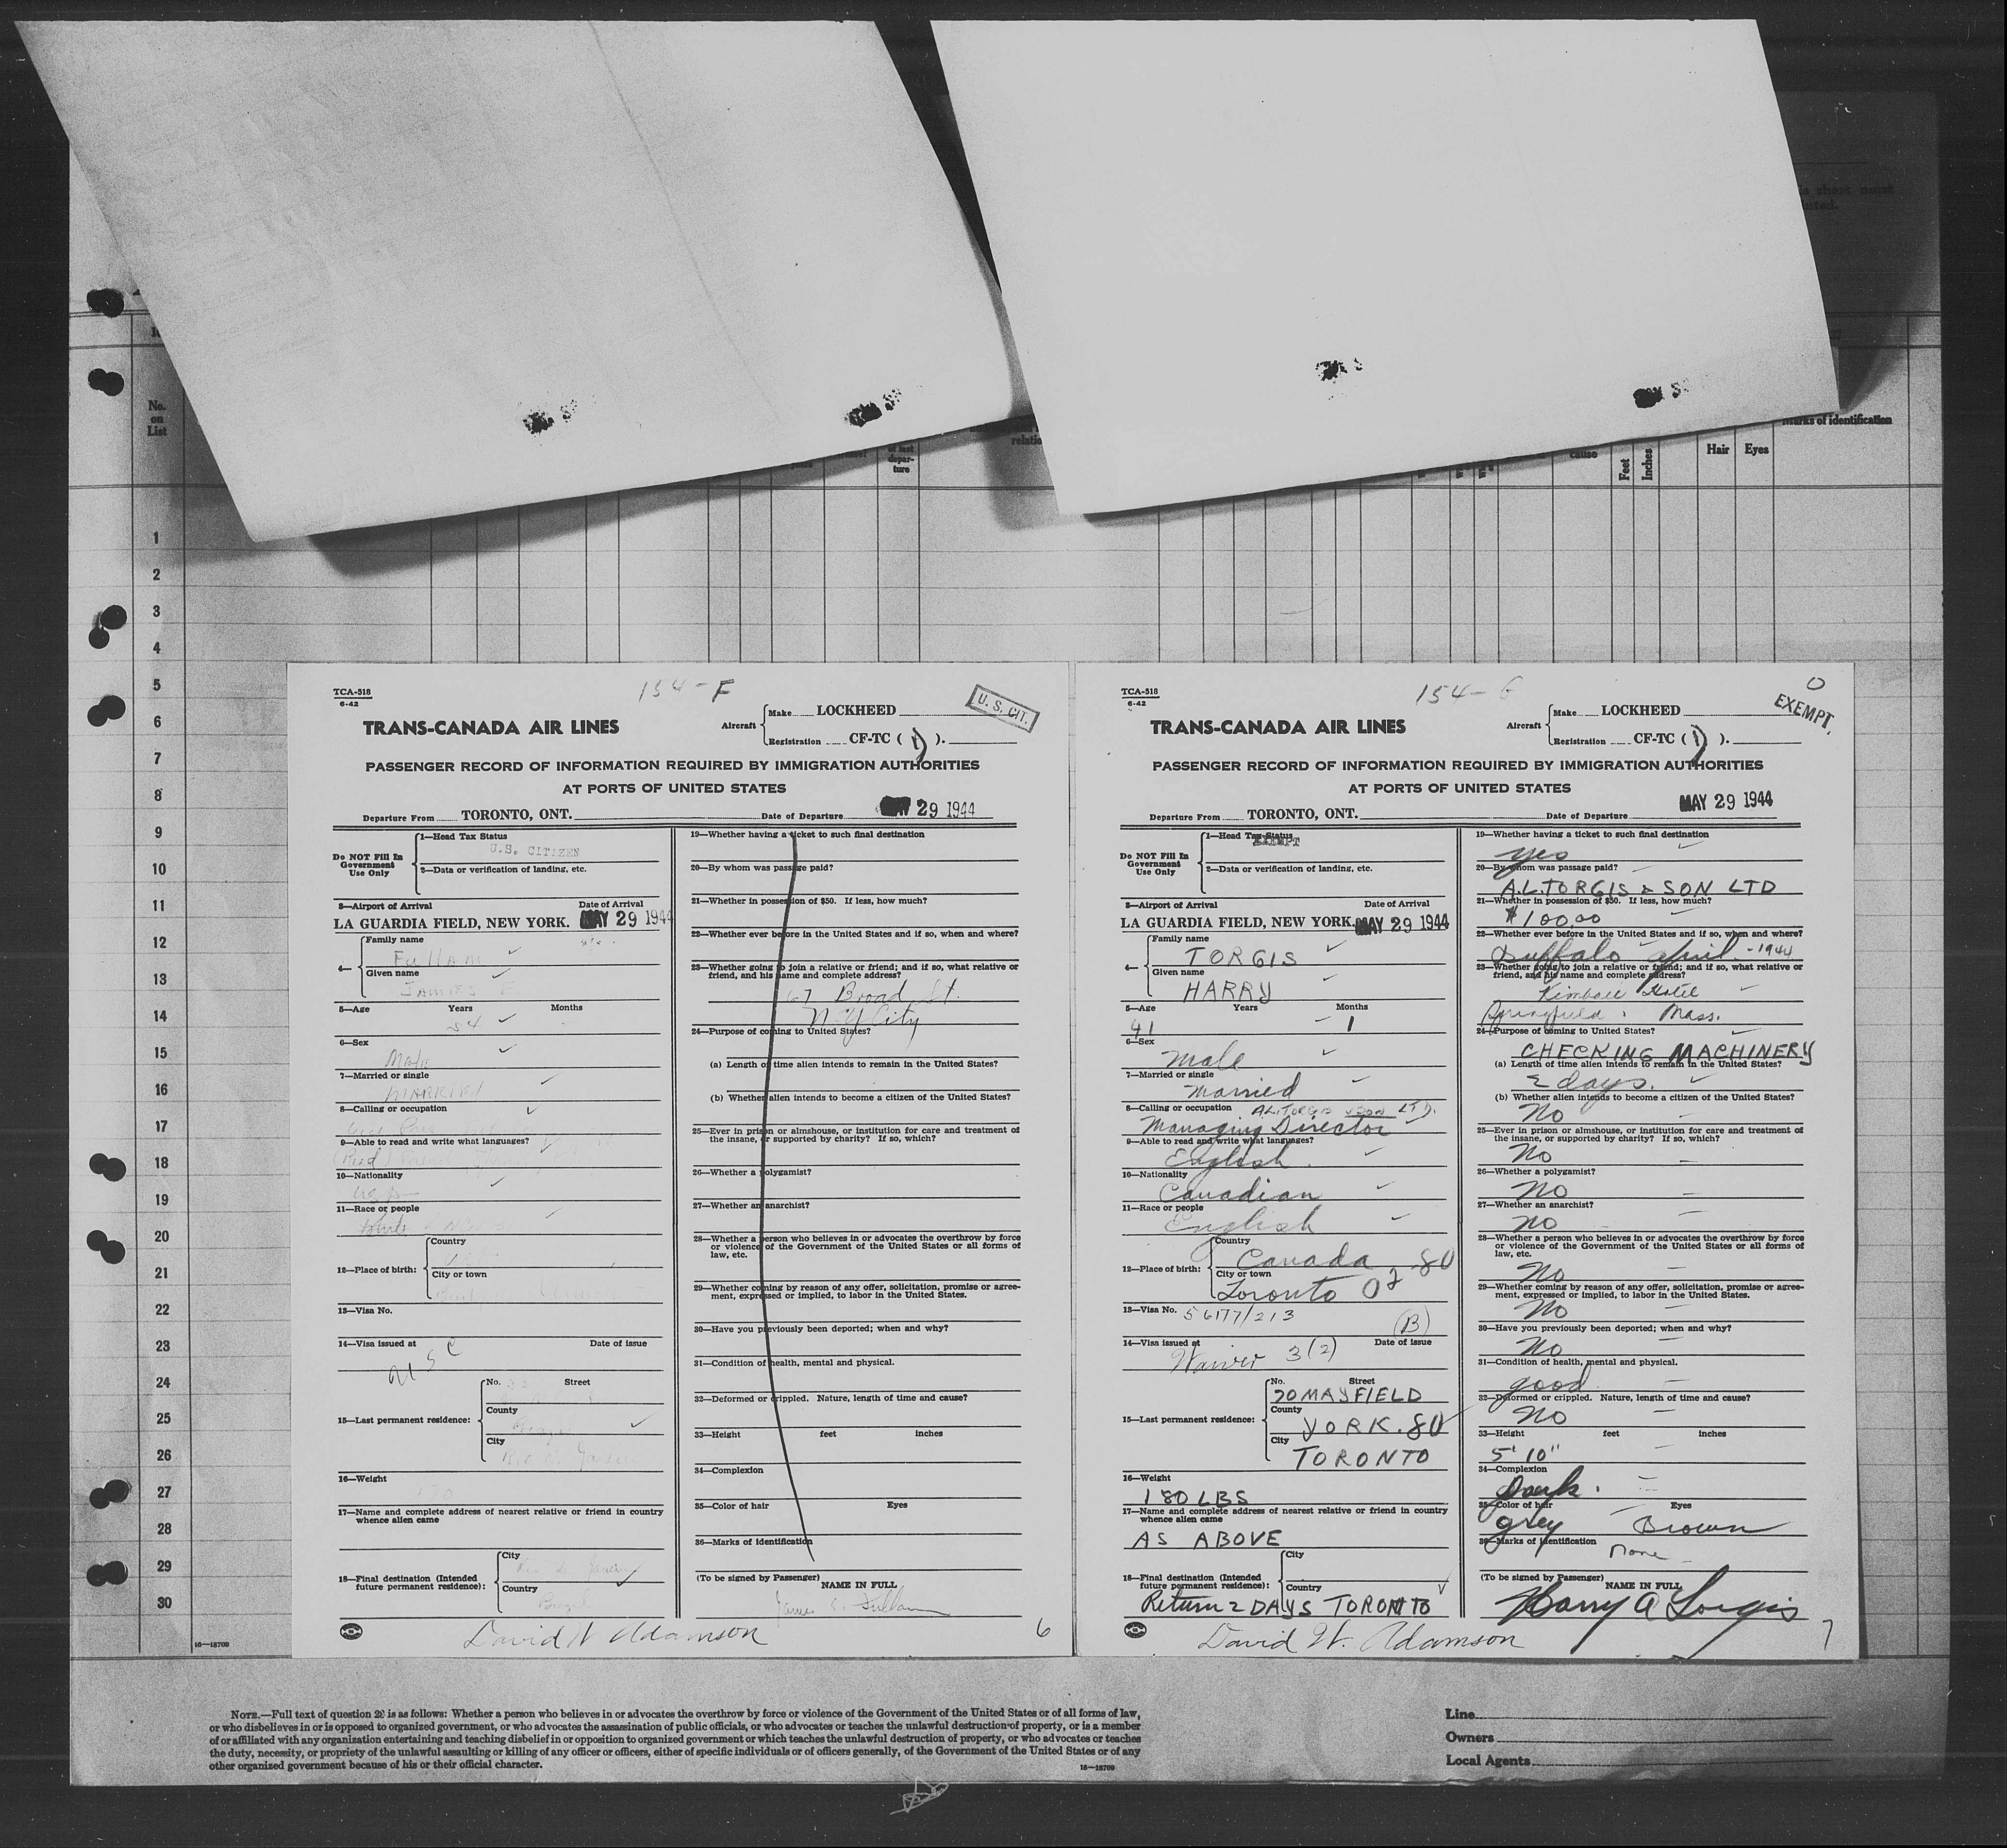 is sheet must
No.
on
List
of last
depar-
ture
relatio
cause
Feet
Inches
Hair
Eyes
Marks of identification
1
2
3
4
5
6
7
8
9
10
11
12
13
14
15
16
17
18
19
20
21
22
23
24
25
26
27
28
29
30
16—18709
TCA-518
6-42
154-F
U. S. CIT.
TRANS-CANADA AIR LINES
Aircraft
Make LOCKHEED
Registration CF-TC (1).
PASSENGER RECORD OF INFORMATION REQUIRED BY IMMIGRATION AUTHORITIES
AT PORTS OF UNITED STATES
Departure From TORONTO, ONT. Date of Departure MAY 29 1944
Do NOT Fill In
Government
Use Only
1—Head Tax Status
U.S. CITIZEN
2—Data or verification of landing, etc.
3—Airport of Arrival Date of Arrival
LA GUARDIA FIELD, NEW YORK. MAY 29 1944
4—
Family name
Fullam
Given name
JAMES E
5—Age Years Months
54
6—Sex
Male
7—Married or single
MARRIED
8—Calling or occupation
9—Able to read and write what languages?
(Read)
10—Nationality
11—Race or people
White
12—Place of birth:
Country
City or town
13—Visa No.
14—Visa issued at Date of issue
USC
15—Last permanent residence:
No. Street
County
City
16—Weight
17—Name and complete address of nearest relative or friend in country
whence alien came
18—Final destination (Intended
future permanent residence):
City
Rio de Janeiro
Country
Brazil
19—Whether having a ticket to such final destination
20—By whom was passage paid?
21—Whether in possession of $50. If less, how much?
22—Whether ever before in the United States and if so, when and where?
23—Whether going to join a relative or friend; and if so, what relative or
friend, and his name and complete address?
67 Broad St.
N.Y City
24—Purpose of coming to United States?
(a) Length of time alien intends to remain in the United States?
(b) Whether alien intends to become a citizen of the United States?
25—Ever in prison or almshouse, or institution for care and treatment of
the insane, or supported by charity? If so, which?
26—Whether a polygamist?
27—Whether an anarchist?
28—Whether a person who believes in or advocates the overthrow by force
or violence of the Government of the United States or all forms of
law, etc.
29—Whether coming by reason of any offer, solicitation, promise or agree-
ment, expressed or implied, to labor in the United States.
30—Have you previously been deported; when and why?
31—Condition of health, mental and physical.
32—Deformed or crippled. Nature, length of time and cause?
33—Height feet inches
34—Complexion
35—Color of hair Eyes
36—Marks of identification
(To be signed by Passenger)
NAME IN FULL
James E. Fullam
David W Adamson
6
TCA-518
6-42
154-G
O
EXEMPT.
TRANS-CANADA AIR LINES
Aircraft
Make LOCKHEED
Registration CF-TC (1).
PASSENGER RECORD OF INFORMATION REQUIRED BY IMMIGRATION AUTHORITIES
AT PORTS OF UNITED STATES
Departure From TORONTO, ONT. Date of Departure MAY 29 1944
Do NOT Fill In
Government
Use Only
1—Head Tax Status
EXEMPT
2—Data or verification of landing, etc.
3—Airport of Arrival Date of Arrival
LA GUARDIA FIELD, NEW YORK. MAY 29 1944
4—
Family name
TORGIS
Given name
HARRY
5—Age Years Months
41 1
6—Sex
Male
7—Married or single
Married
8—Calling or occupation A.L. TORGIS & SON LTD.
Managing Director
9—Able to read and write what languages?
English
10—Nationality
Canadian
11—Race or people
English
12—Place of birth:
Country
Canada 80
City or town
Toronto 02
13—Visa No. 56177/213
(B)
14—Visa issued at Date of issue
Waiver 3(2)
15—Last permanent residence:
No. Street
20 MAYFIELD
County
YORK. 80
City
TORONTO
16—Weight
180 LBS
17—Name and complete address of nearest relative or friend in country
whence alien came
AS ABOVE
18—Final destination (Intended
future permanent residence):
City
Country
Return 2 DAYS TORONTO
19—Whether having a ticket to such final destination
yes
20—By whom was passage paid?
A.L. TORGIS & SON LTD
21—Whether in possession of $50. If less, how much?
$100.00
22—Whether ever before in the United States and if so, when and where?
Buffalo April - 1944
23—Whether going to join a relative or friend; and if so, what relative or
friend, and his name and complete address?
Kimball Hotel
Springfield, Mass.
24—Purpose of coming to United States?
CHECKING MACHINERY
(a) Length of time alien intends to remain in the United States?
2 days.
(b) Whether alien intends to become a citizen of the United States?
No
25—Ever in prison or almshouse, or institution for care and treatment of
the insane, or supported by charity? If so, which?
No
26—Whether a polygamist?
No
27—Whether an anarchist?
No
28—Whether a person who believes in or advocates the overthrow by force
or violence of the Government of the United States or all forms of
law, etc.
No
29—Whether coming by reason of any offer, solicitation, promise or agree-
ment, expressed or implied, to labor in the United States.
No
30—Have you previously been deported; when and why?
No
31—Condition of health, mental and physical.
good
32—Deformed or crippled. Nature, length of time and cause?
No
33—Height feet inches
5' 10"
34—Complexion
Dark.
35—Color of hair Eyes
grey Brown
36—Marks of identification
None
(To be signed by Passenger)
NAME IN FULL
Harry A Torgis
David W. Adamson
7
NOTE.—Full text of question 28 is as follows: Whether a person who believes in or advocates the overthrow by force or violence of the Government of the United States or of all forms of law,
or who disbelieves in or is opposed to organized government, or who advocates the assassination of public officials, or who advocates or teaches the unlawful destruction of property, or is a member
of or affiliated with any organization entertaining and teaching disbelief in or opposition to organized government or which teaches the unlawful destruction of property, or who advocates or teaches
the duty, necessity, or propriety of the unlawful assaulting or killing of any officer or officers, either of specific individuals or of officers generally, of the Government of the United States or of any
other organized government because of his or their official character.
16—18709
Line
Owners
Local Agents